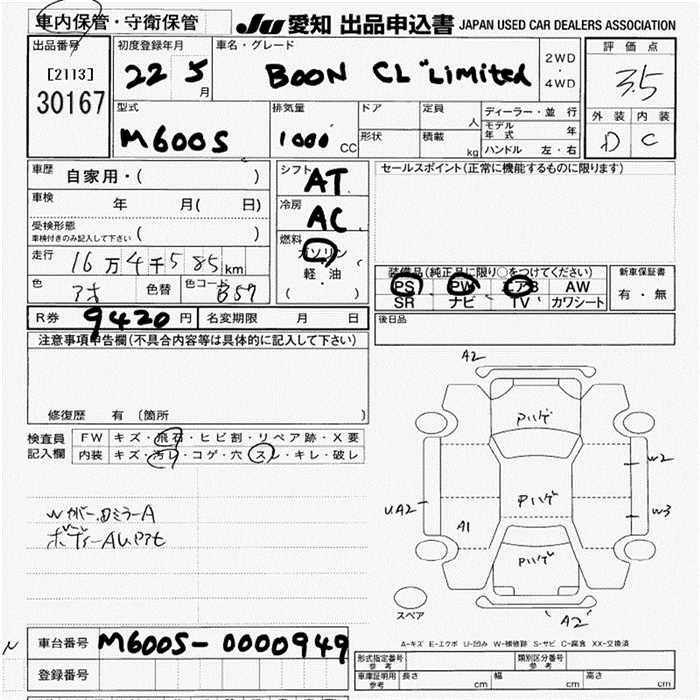 車内保管・守衛保管
JU 愛知 出品申込書 JAPAN USED CAR DEALERS ASSOCIATION
出品番号
[2113]
30167
初度登録年月
22 5 月
車名・グレード
BOON CL "Limited
2WD
・
4WD
評価点
3.5
外装 内装
D C
型式
M600S
排気量
1000 CC
ドア
形状
定員
人
積載
kg
ディーラー・並行
モデル年式 年
ハンドル 左・右
車歴 自家用・( )
車検 年 月( 日)
受検形態
車検付きのみ記入して下さい ( )
走行 16万4千585km
色 アオ 色替 色コード B57
シフト
AT
冷房
AC
燃料
ガソリン
・
軽・油
( )
セールスポイント(正常に機能するものに限ります)
装備品(純正品に限り○をつけてください)
PS PW エアB AW
SR ナビ TV カワシート
新車保証書
有・無
R券 9420 円 名変期限 月 日
後日品
注意事項申告欄(不具合内容等は具体的に記入して下さい)
修復歴 有 (箇所 )
検査員
記入欄
FW キズ・飛石・ヒビ割・リペア跡・X要
内装 キズ・汚レ・コゲ・穴・スレ・キレ・破レ
A2
Pハゲ
W2
UA2
Pハゲ
W3
A1
Pハゲ
A2
スペア
A-キズ E-エクボ U-凹み W-補修跡 S-サビ C-腐食 XX-交換済
車台番号 M600S-0000949
登録番号
形式指定番号
参考
類別区分番号
参考
車庫証明用
参考
長さ cm 幅 cm 高さ cm